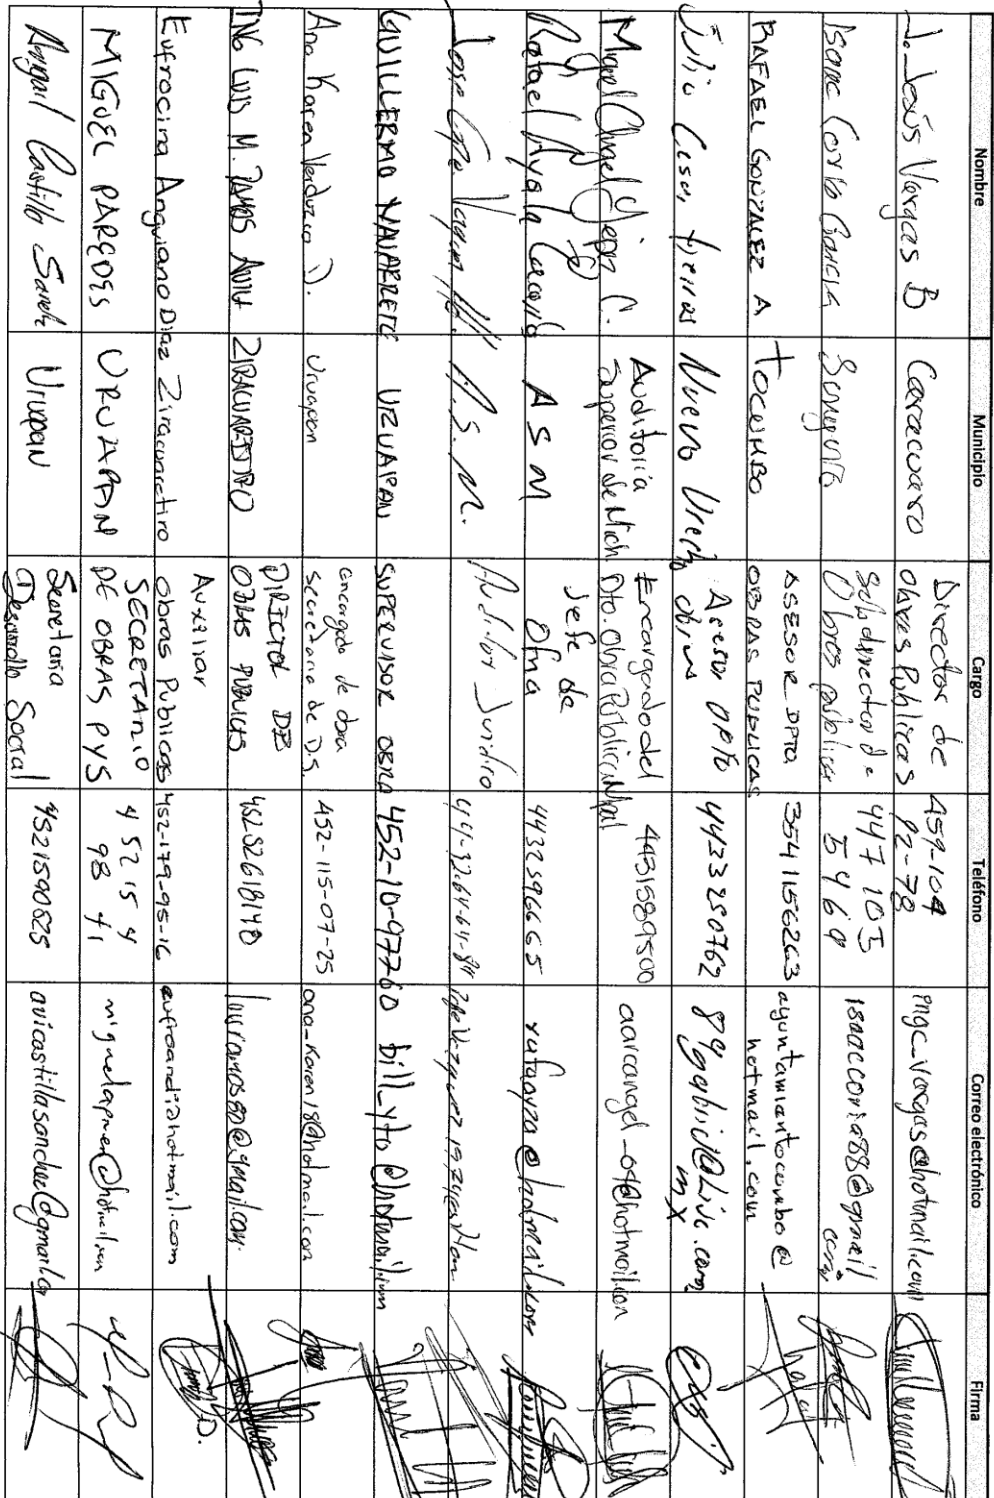 Nombre Municipio Cargo Teléfono Correo electrónico Firma
J. Jesús Vargas B Caracuaro Director de Obras Públicas 459-104 92-78 ingc_vargas@hotmail.com
Isaac Coria García Subdirector de Obras públicas 447 103 5469 isaaccoria88@gmail.com
RAFAEL GONZALEZ A TOCUMBO ASESOR DPTO OBRAS PUBLICAS 3541156263 ayuntamientotocumbo@hotmail.com
Julio Cesar Nuevo Urecho Asesor DPTO obras 4433280762
Miguel Angel C. Auditoria Superior de Mich Encargado del Dto. Obra Pública Mpal 4431589500 aarcangel_04@hotmail.com
Rafael Ayala A S M Jefe de Ofna 4432596665 rafayza@hotmail.com
Jose A.S.M. Auditor Juridico
GUILLERMO NAVARRETE URUAPAN SUPERVISOR OBRA 452-10-97760 bill_yto@hotmail.com
Ana Karen Verduzco D. Uruapan encargada de obra secretaria de D.S. 452-115-07-25 ana_karen18@hotmail.com
ING LUIS M. RAMOS ZIRACUARETIRO DIRECTOR DE OBRAS PUBLICAS 4525261848 luisramos80@gmail.com
Eufrocina Anguiano Diaz Ziracuaretiro Auxiliar Obras Publicas 452-179-95-16 eufroandi@hotmail.com
MIGUEL PAREDES URUAPAN SECRETARIO DE OBRAS PYS 452 15 4 98 41
Avigail Castillo Sanch Uruapan Secretaria Desarrollo Social 4521590825 avicastillosanchez@gmail.com